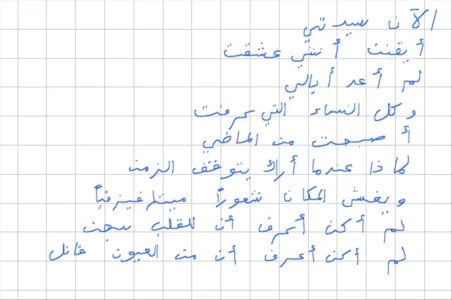 الآن سيدتي
أيقنت أنني عشقت
لم أعد أبالي
وكل النساء التي عرفت
أصبحت من الماضي
لماذا عندما أراك يتوقف الزمن
ويغشى المكان شعوراً ميتافيزقياً
لم أكن أعرف أن للقلب سجن
لم أكن أعرف أن من العيون قاتل